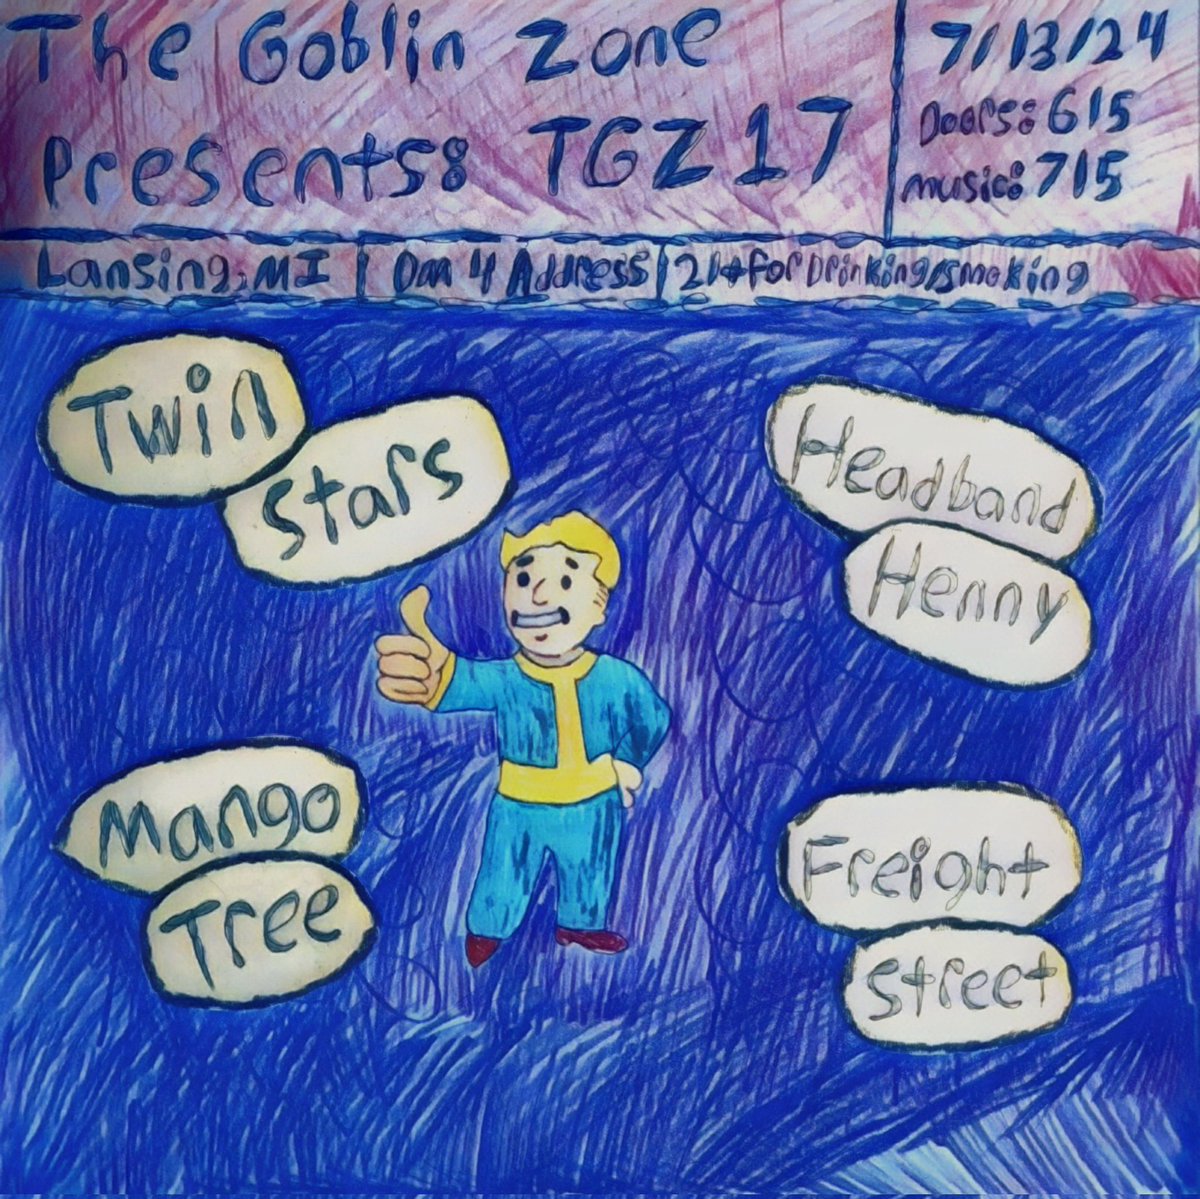 The Goblin Zone
Presents: TGZ 17
7/13/24
Doors: 615
music: 715
Lansing, MI | Dm 4 Address | 21+ for Drinking/smoking
Twin
Stars
Headband
Henny
Mango
Tree
Freight
Street